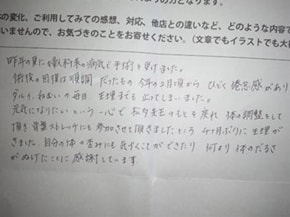 の変化、ご利用してみての感想、対応、他店との違いなど、どのような内容で
いませんので、お気づきのことをお寄せください。(文章でもイラストでも大
昨年の夏に婦人科系の病気で手術を受けました。
術後の回復は順調だったものの今年の2月頃からひどく倦怠感があり
ダルイ、ねむいの毎日、生理までも止ってしまいました。
元気になりたいという一心で 先生のもとを 体の調整をして
頂き骨盤ストレッチにも参加させて頂きましたところ 4ヶ月ぶりに生理が
きました。自分の体の歪みにも気づくことができたり 何より体のだるさ
がぬけたことに感謝しています。